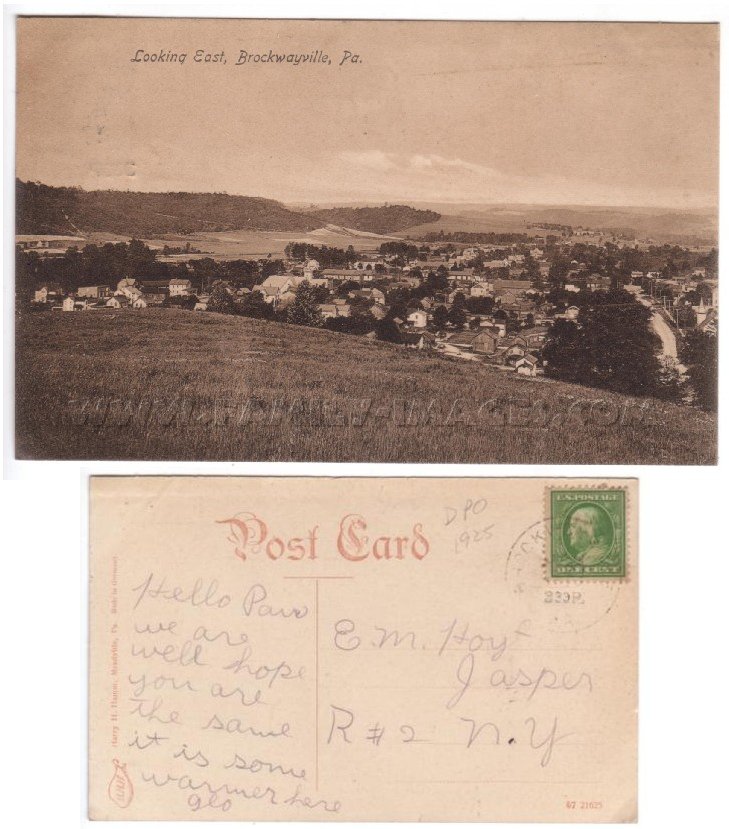 Looking East, Brockwayville, Pa.
WWW.FAMILY-IMAGES.COM
Post Card
DPO
1925
U.S. POSTAGE
ONE CENT
330P.
Hello Paw
we are
well hope
you are
the same
it is some
warmer here
geo
E.M. Hoyt
Jasper
R#2 N.Y
Harry H. Hamm, Pa. Made in Germany
67 21625